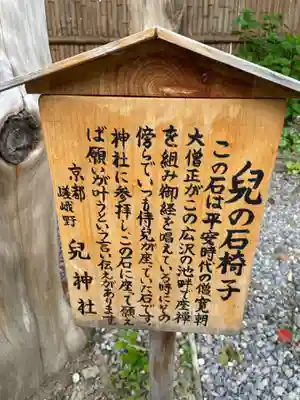 兒の石椅子
この石は平安時代の僧寛朝
大僧正がこの広沢の池畔で座禅
を組み御経を唱えている時にその
傍らでいつも侍兒が座っていた石です。
神社に参拝しこの石に座って願え
ば願いが叶うという言い伝えがあります。
京都
嵯峨野
兒神社